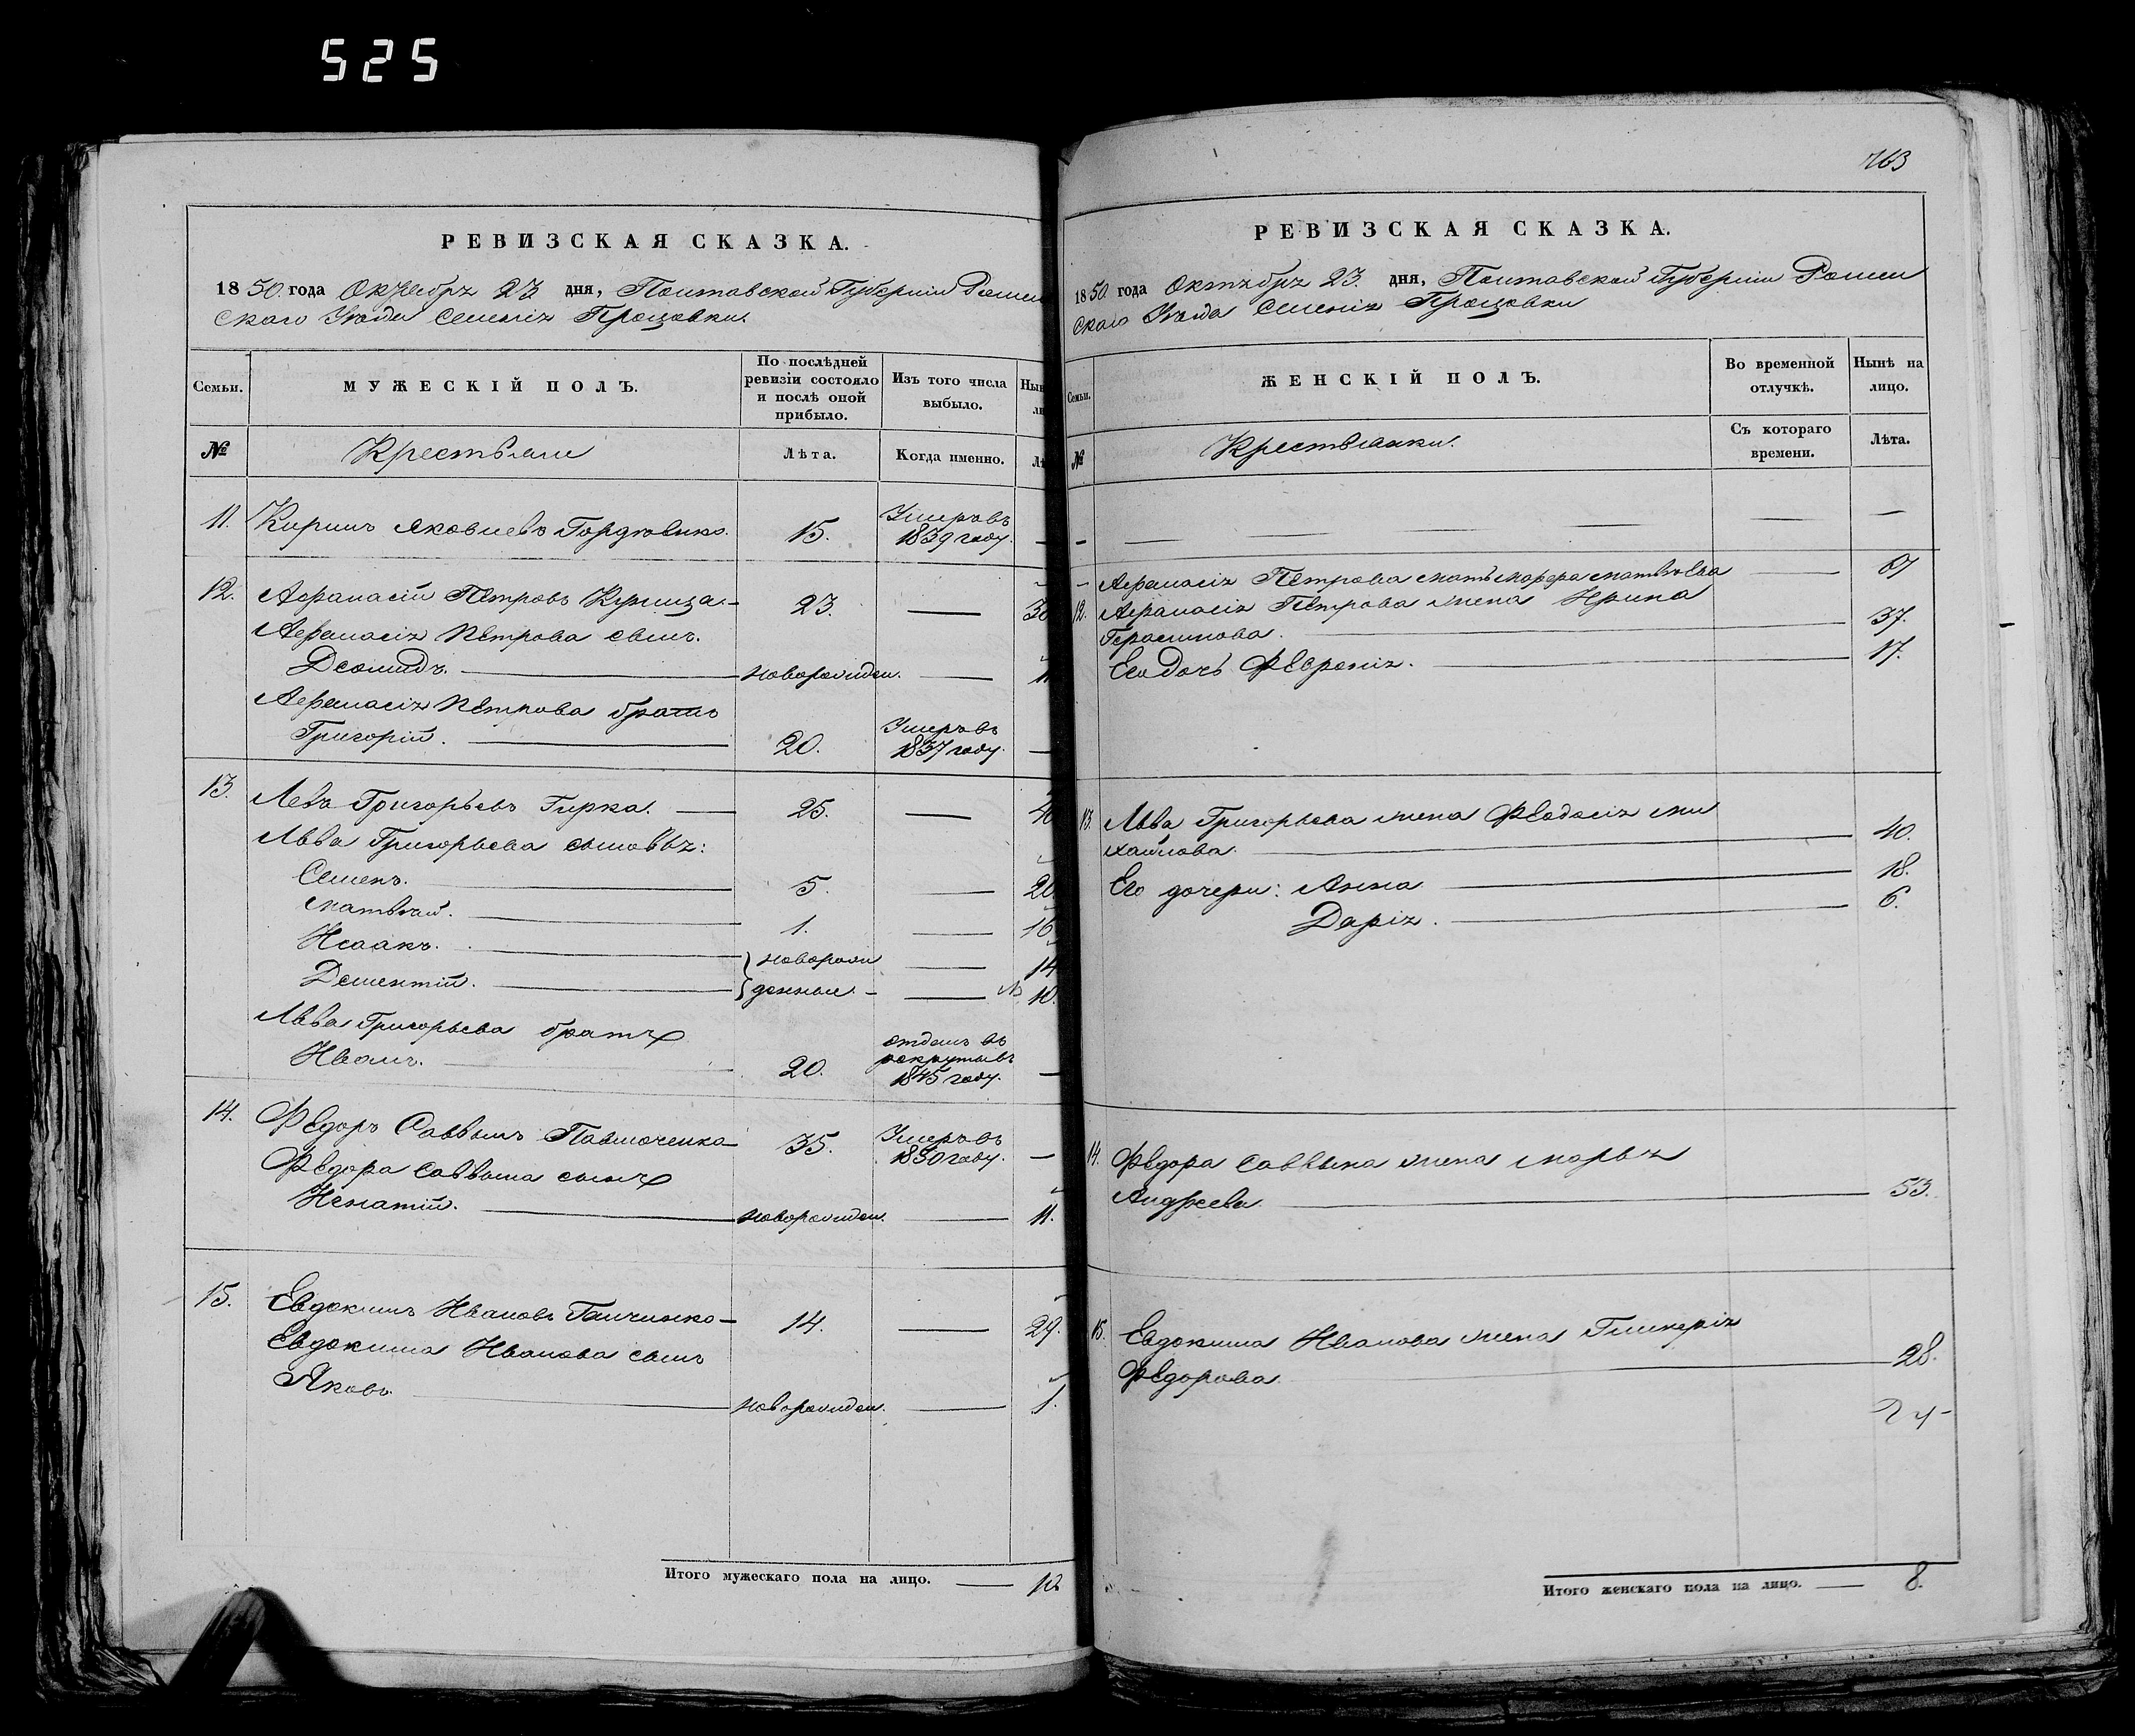 525
РЕВИЗСКАЯ СКАЗКА.
1850. года Октября 23 дня, Полтавской Губерніи Ромен
скаго Уезда Селенія Процовки.
Семьи.
МУЖЕСКІЙ ПОЛЪ.
По послѣдней ревизіи состояло и послѣ оной прибыло.
Изъ того числа выбыло.
№
Крестьяне
Лѣта.
Когда именно.
11. Кирилъ Яковлевъ Гордѣенко. 15. Умеръ въ 1839 году. —
12. Афанасій Петровъ Курица. — 23. —
Афанасія Петрова сынъ.
Деомидъ. — новорожден. —
Афанасія Петрова братъ
Григорій. — 20. Умеръ въ 1837 году. —
13. Левъ Григорьевъ Гирка. — 25. —
Льва Григорьева сыновья:
Семенъ. — 5. — 20
Матвѣй. — 1. — 16
Исаакъ. — новорож — 14
Дементій. — денные. — 10.
Льва Григорьева братъ
Иванъ. — 20. отданъ въ рекруты въ 1845 году. —
14. Федоръ Саввинъ 35. Умеръ въ 1850 году. —
Федора Саввина сынъ
Игнатій. — новорожден. — 11.
15. Евдокимъ Ивановъ — 14. — 29.
Евдокима Иванова сынъ
Яковъ. — новорожден. — 1.
Итого мужескаго пола на лицо. —
763
РЕВИЗСКАЯ СКАЗКА.
1850 года Октября 23. дня, Полтавской Губерніи Ромен
скаго Уезда Селенія Процовки
Семьи.
ЖЕНСКІЙ ПОЛЪ.
Во временной отлучкѣ.
Нынѣ на лицо.
№
Крестьянки.
Съ котораго времени.
Лѣта.
— — — — —
Афанасія Петрова мать Матвѣева —
12. Афанасія Петрова жена Ирина
Герасимова. — 37.
Его дочь Февронія. — 17.
13. Льва Григорьева жена Феодосія Ми
хайлова. — 40.
Его дочери: Анна — 18.
Дарія. — 6.
14. Федора Саввина жена Марья
Андреева. — 53.
15. Евдокима Иванова жена Гликерія
Федорова. — 28.
Итого женскаго пола на лицо. — 8.